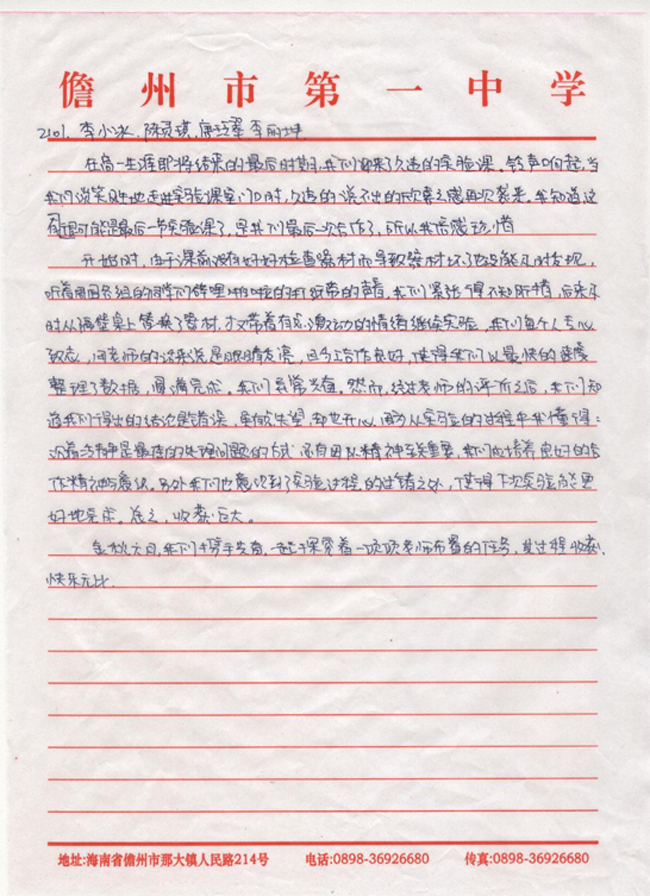 儋州市第一中学
2101. 李小冰. 陈灵琪. 李丽坤
在高一生涯即将结束的最后时期,我们迎来了久违的实验课。铃声响起,当
我们谈笑风生地走进实验课室门口时,久违的说不出的欣喜之感再次袭来。我知道这
有可能是最后一节实验课了,是我们最后一次合作了,所以我倍感动惜
开始时,由于课前没有好好检查器材而导致器材坏了也没能及时发现,
听着周围各组的同学们哗哩哗啦的打纸带的声音,我们紧张得不知所措,后来及
时从隔壁桌上替换了器材,才又带着有点激动的情绪继续实验,我们每个人专心
致志,同老师的说来说是眼睛发亮,且分工合作良好,使得我们以最快的速度
整理了数据,圆满完成。我们异常兴奋。然而,经过老师的评析之后,我们知
道我们得出的结论是错误,虽有失望,却也开心,因为从实验的过程中我懂得:
沉着冷静是最佳的处理问题的方式,还有团队精神至关重要,我们也培养良好的合
作精神与意识。另外我们也意识到了实验过程的过错之处,使得下次实验能更
好地完成。总之,收获巨大。
金秋六月,我们携手共育,一起探究着一项项老师布置的任务,其过程收获、
快乐无比.
地址:海南省儋州市那大镇人民路214号 电话:0898-36926680 传真:0898-36926680